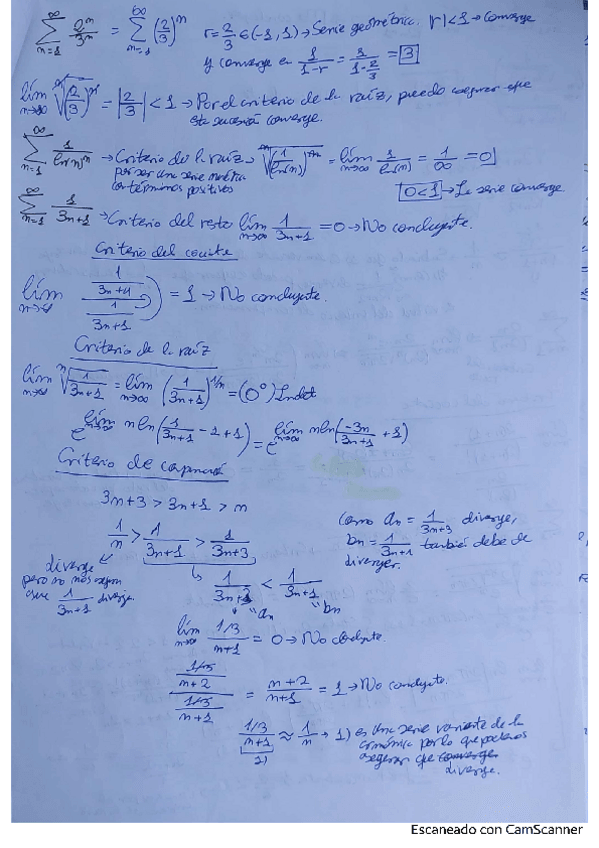 ∞∑n=1 2ⁿ/3ⁿ = ∞∑n=1 (2/3)ⁿ r=2/3 ∈(-1,1)→Serie geométrica. |r|<1→Converge
y converge en 1/(1-r) = 1/(1-2/3) = 3
lím n→∞ ⁿ√(2/3)ⁿ = |2/3| < 1 → Por el criterio de la raíz, puedo asegurar que
esta sucesión converge.
∞∑n=1 1/ln(n)ⁿ → Criterio de la raíz → ⁿ√(1/ln(n))ⁿ = lím n→∞ 1/ln(n) = 1/∞ = 0
por ser una serie
con términos positivos
0<1 → La serie converge
∞∑n=1 1/(3n+1) → Criterio del resto lím n→∞ 1/(3n+1) = 0 → No concluyente.
Criterio del cociente
lím n→∞ (1/(3n+4))/(1/(3n+1)) = 1 → No concluyente.
Criterio de la raíz
lím n→∞ ⁿ√(1/(3n+1)) = lím n→∞ (1/(3n+1))^(1/n) = (0⁰) Indet
e^(lím n→∞ n ln(1/(3n+1) -1+1)) = e^(lím n→∞ n ln(-3n/(3n+1) +1))
Criterio de comparación
3n+3 > 3n+1 > n
1/n > 1/(3n+1) > 1/(3n+3)
Como an = 1/(3n+3) diverge,
bn = 1/(3n+1) también debe de
diverger.
diverge
pero no nos
que 1/(3n+1) diverge.
1/(3n+3) < 1/(3n+1)
"an "bn
lím n→∞ (1/3)/(n+1) = 0 → No concluyente.
((1/3)/(n+2))/((1/3)/(n+1)) = (n+2)/(n+1) = 1 → No concluyente.
(1/3)/(n+1) ≈ 1/n → 1) es una serie variante de la
armónica por lo que podemos
asegurar que converge
diverge.
1)
Escaneado con CamScanner